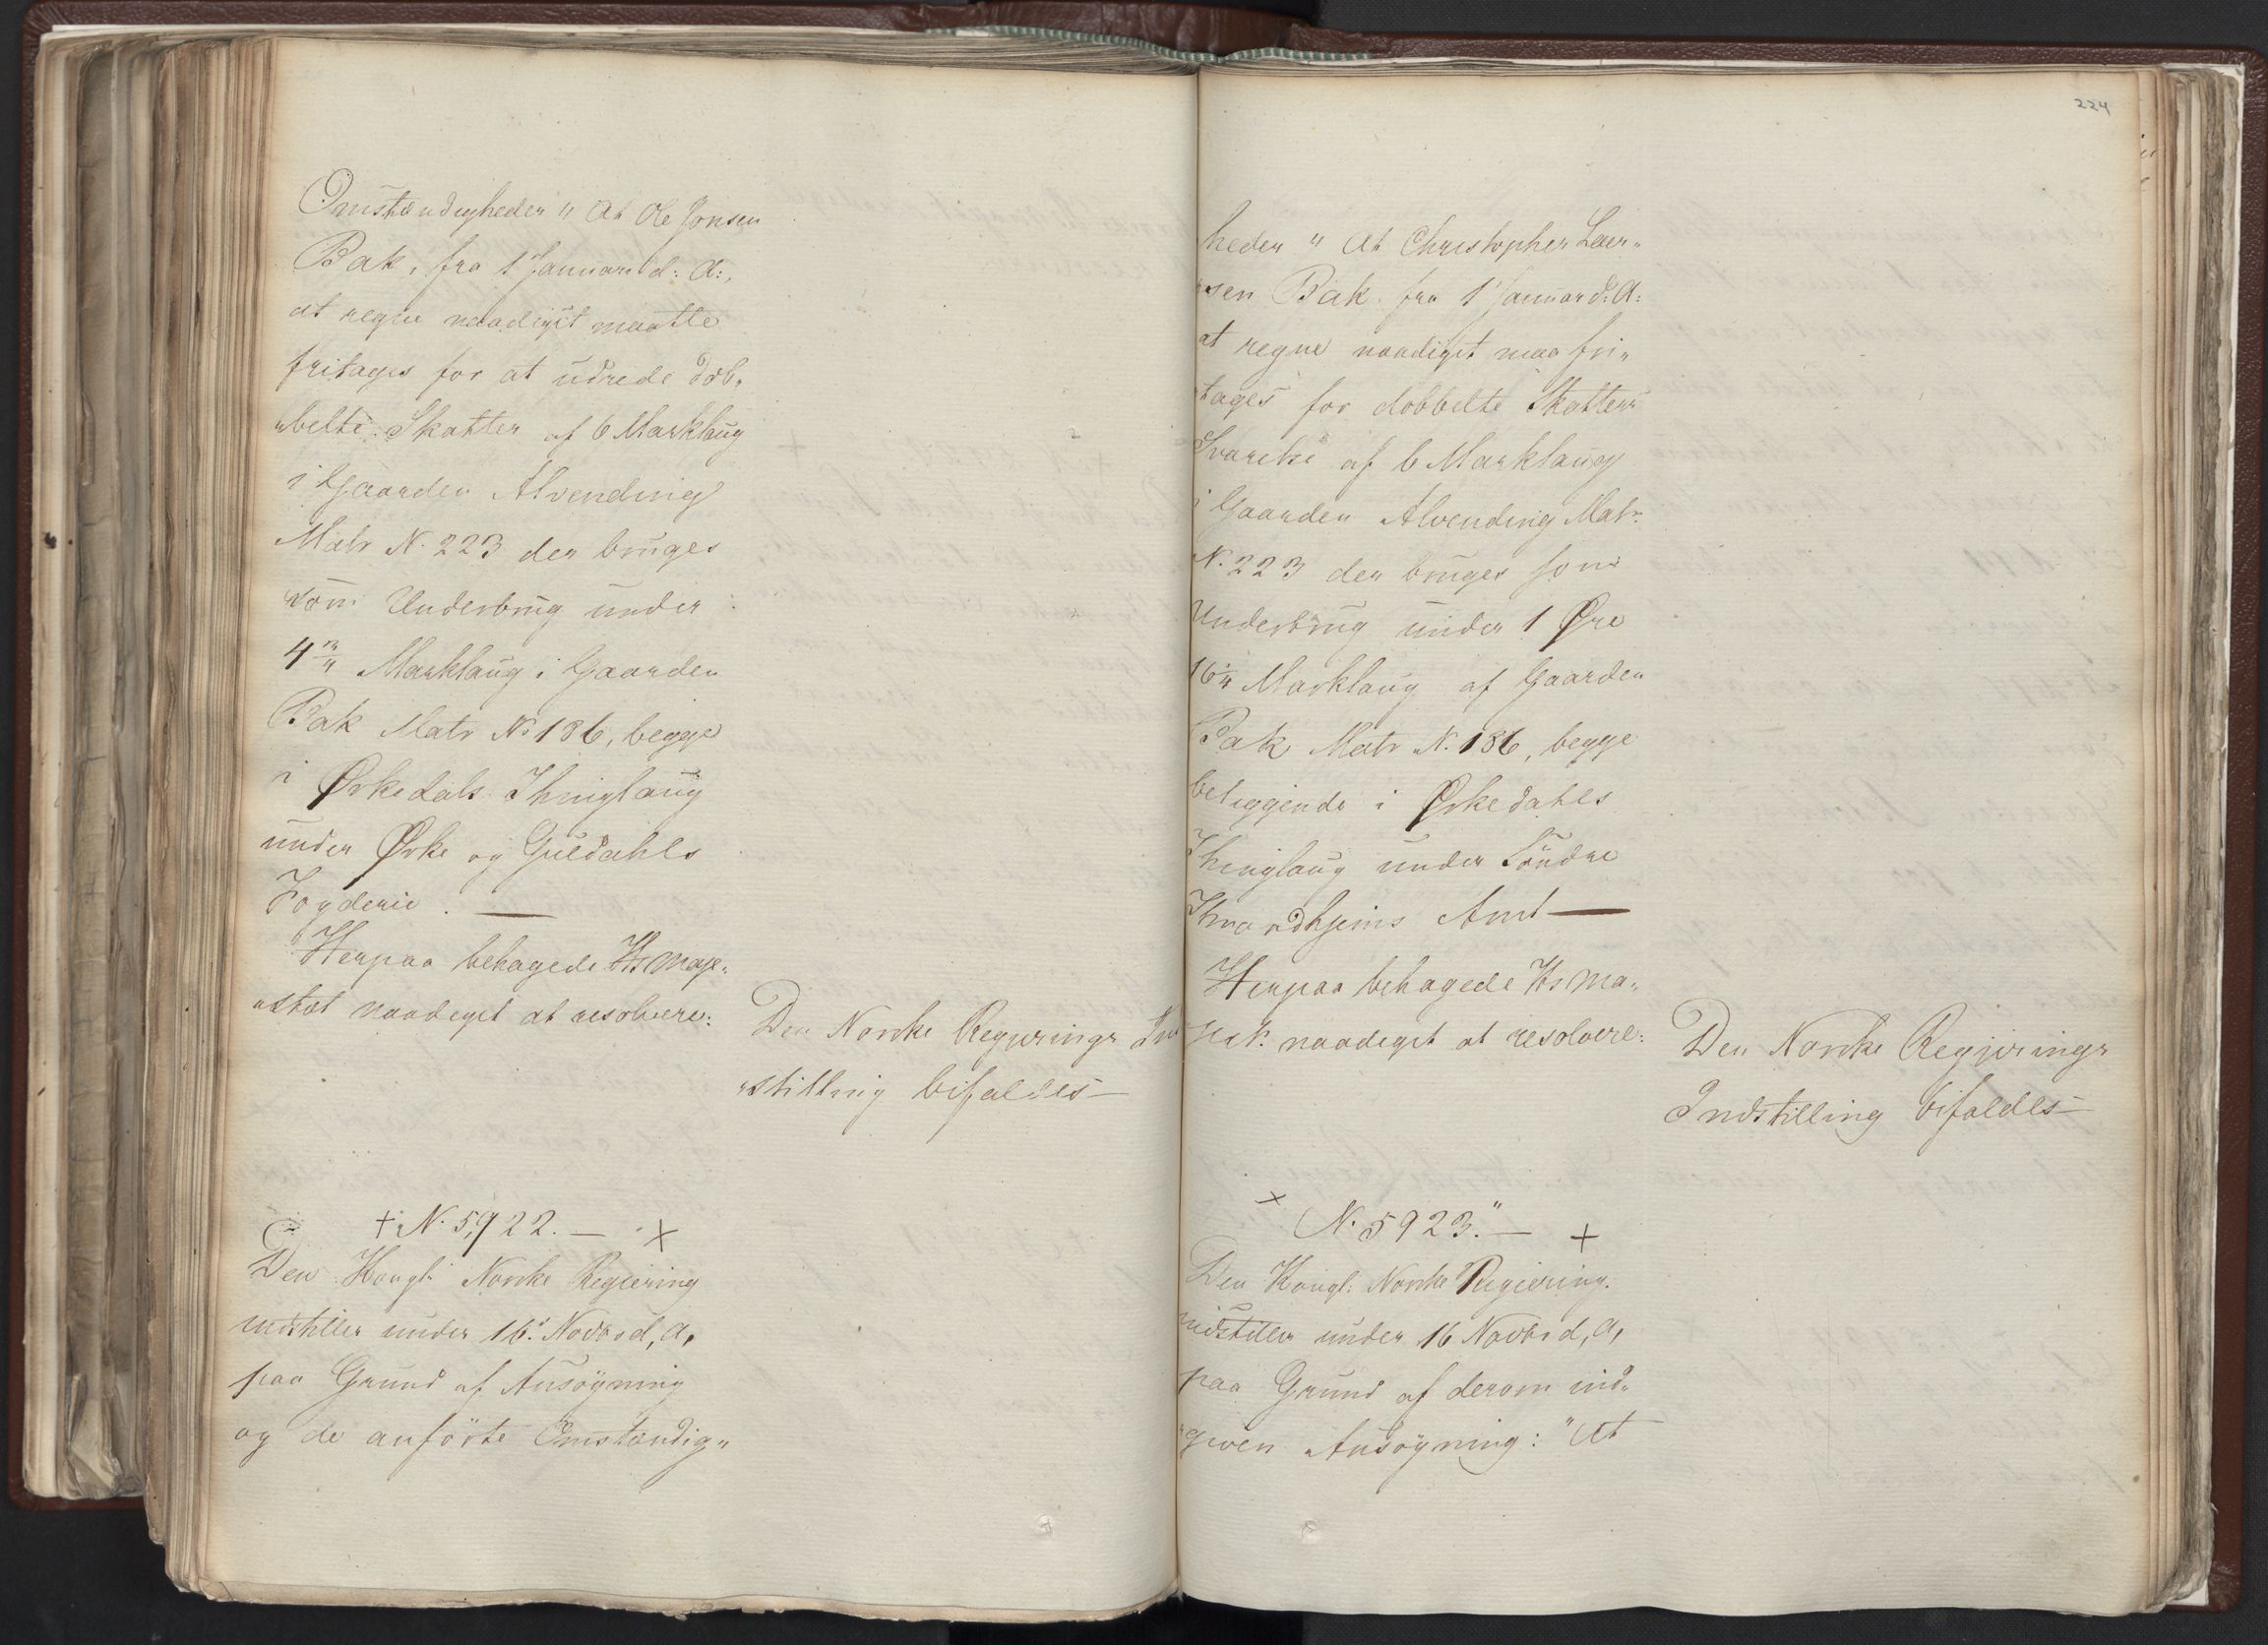 Omstændigheder " At Ole Jonsen
Bak, fra 1 Januar d: A:,
at regne naadigst maatte
fritages for at udrede dob„
„belte Skatter af 6 Marklaug
i Gaarden Alvending
Matr N. 223 der bruges
som Underbrug under
4 3/4 Marklaug i Gaarden
Bak Matr No 186, begge
i Ørkedals Thinglaug
under Ørke og Guldahls
Fogderie. —
Herpaa behagede Hs Maje„
„stæt naadigst at resolvere:
Den Norske Regjerings Ind
„stilling bifaldes —
+ N. 5,922. — +
Den Kongl: Norske Regiering
indstiller under 16. Novbr d, A,
paa Grund af Ansøgning
og de anførte Omstændig„
224
heder " At Christopher Laur„
„sen Bak fra 1 Januar d: A:
at regne naadigst maa fri„
tages for dobbelte Skatters
Svarelse af 6 Marklaug
i Gaarden Alvending Matr
N. 223 der bruges som
Underbrug under 1 Øre
16 1/4 Marklaug af Gaarden
Bak Matr N. 186, begge
beliggende i Ørkedahls
Thinglaug under Søndre
Throndhjems Amt —
Herpaa behagede Hs Ma„
jest. naadigst at resolvere:
Den Norske Regjerings
Indstilling bifaldes —
+ N. 5923." — +
Den Kongl: Norske Regiering.
indstiller under 16 Novbr d, A,
paa Grund af derom ind„
„given Ansøgning: "At